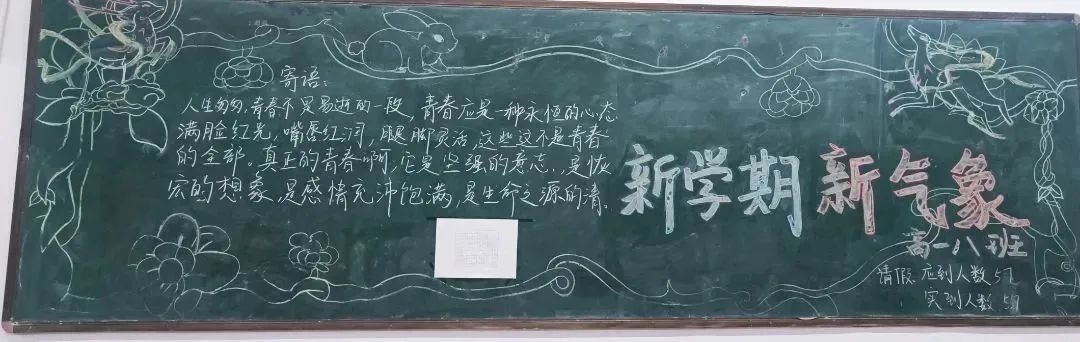 寄语:
人生匆匆,青春不是易逝的一段,青春应是一种永恒的心态
满脸红光,嘴唇红润,腿脚灵活,这些这不是青春
的全部.真正的青春啊,它是坚强的意志,是恢
宏的想象,是感情充沛饱满,是生命之源的清。
新学期 新气象
高一八班
请假 应到人数 57
实到人数